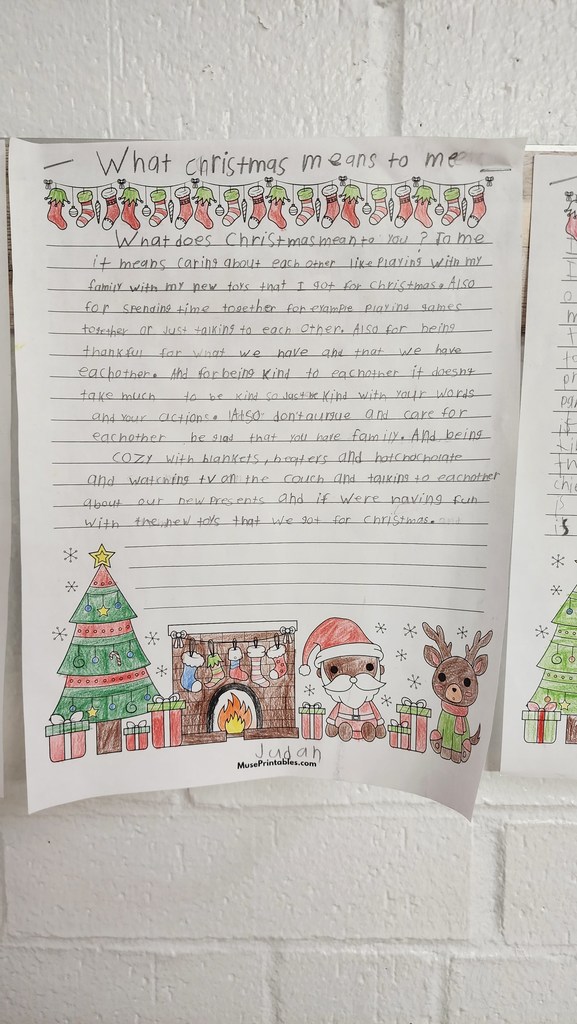 What christmas means to me
What does Christmas mean to you? To me
it means caring about each other like playing with my
family with my new toys that I got for christmas. Also
for spending time together for example playing games
together or Just talking to each other. Also for being
thankful for what we have and that we have
eachother. And for being kind to eachother it doesnt
take much to be kind so Just be kind with your words
and your actions. Also don't aurgue and care for
eachother be glad that you have family. And being
cozy with blankets, heaters and hotchocholate
and watching tv on the couch and talking to eachother
about our new presents and if were having fun
with the new toys that we got for christmas.
Judah
MusePrintables.com